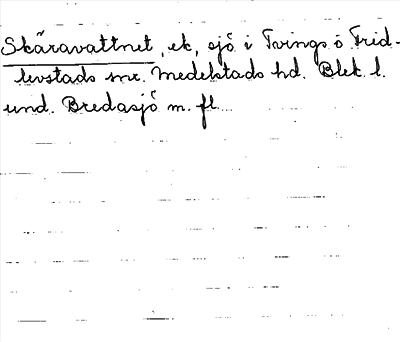 Skäravattnet, ek, sjö i Tvings ö Frid-
levstads snr. Medelstads hd. Blek. l.
und. Bredasjö m. fl.